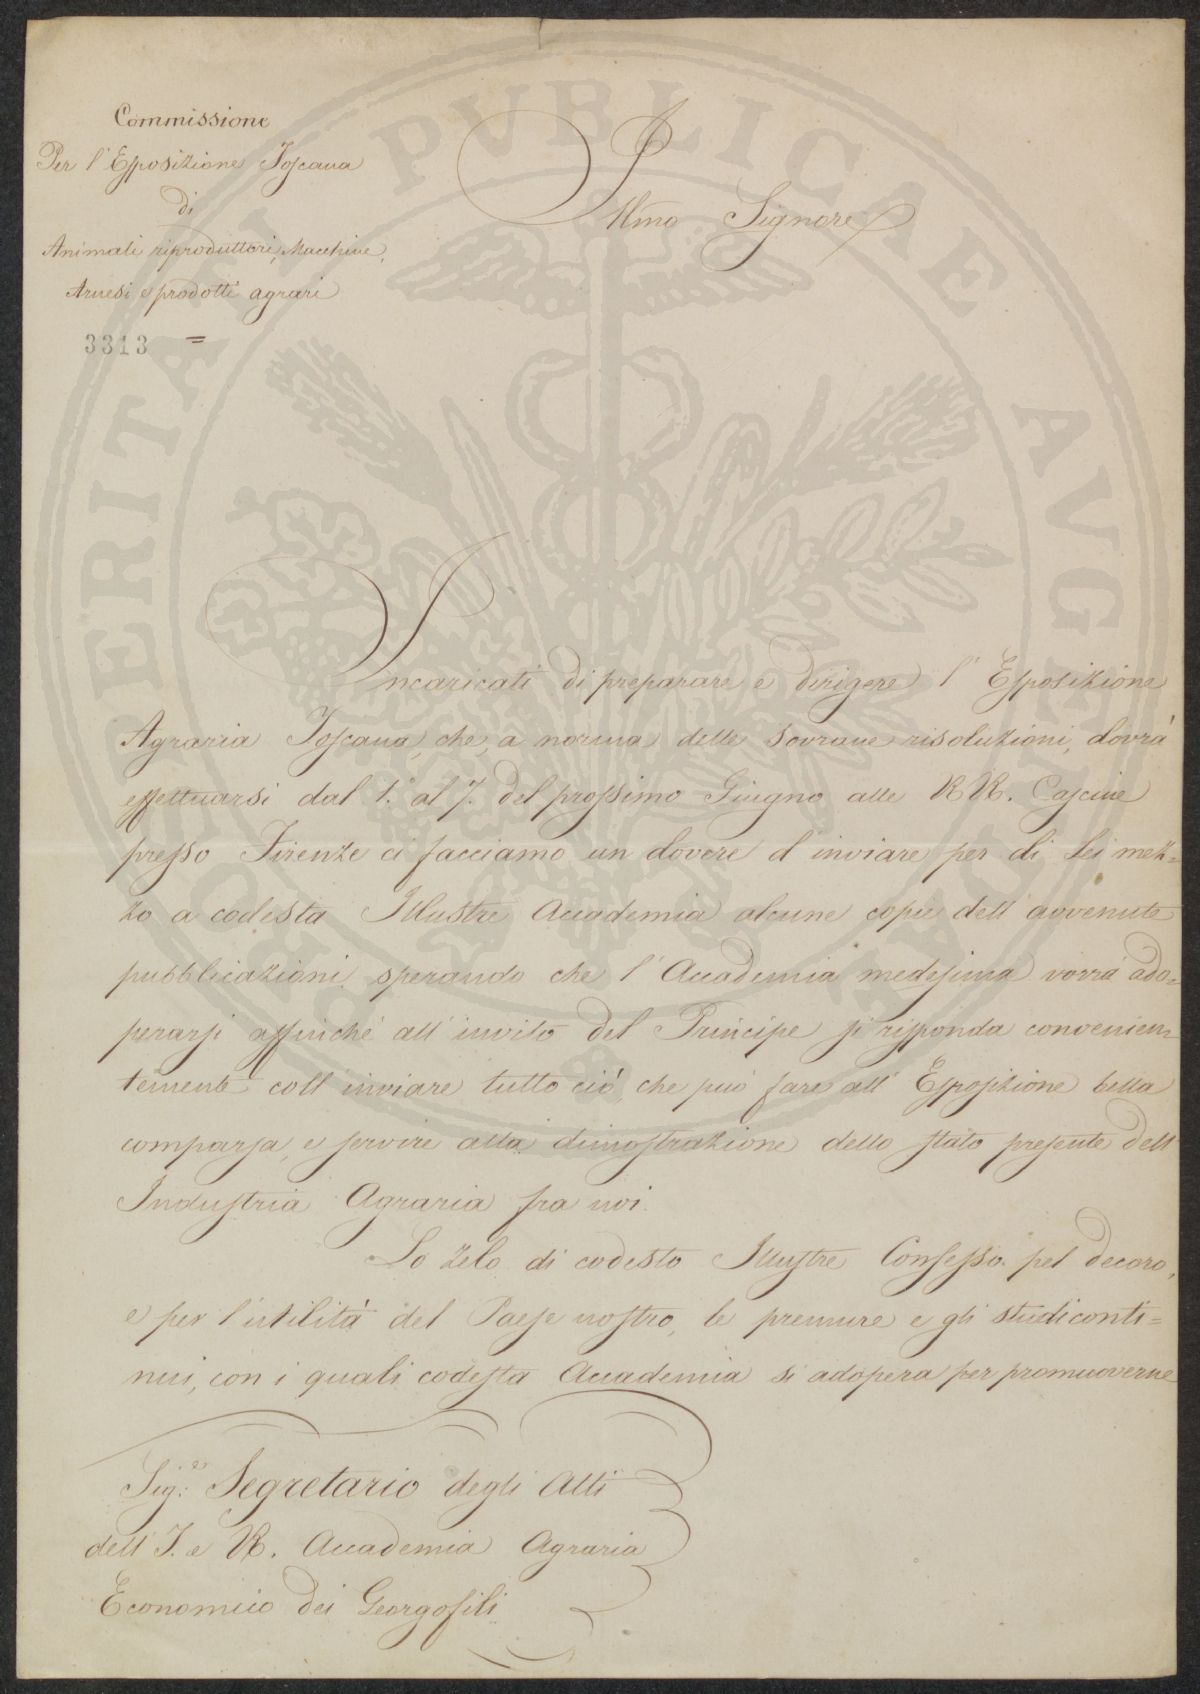 Commissione
Per l'Esposizione Toscana
di
Animali riproduttori, Macchine,
Arnesi e prodotti agrari
3313 =
Illmo Signore
Incaricati di preparare e dirigere l'Esposizione
Agraria Toscana, che, a norma delle sovrane risoluzioni, dovrà
effettuarsi dal 1.° al 7. del prossimo Giugno alle RR. Cascine
presso Firenze ci facciamo un dovere d'inviare per di Lei mez=
zo a codesta Illustre Accademia alcune copie dell'avvenute
pubblicazioni, sperando che l'Accademia medesima vorrà ado=
perarsi affinché all'invito del Principe si risponda convenien=
temente coll'inviare tutto ciò, che può fare all'Esposizione bella
comparsa, e servire alla dimostrazione dello stato presente dell'
Industria Agraria fra noi.
Lo zelo di codesto Illustre Consesso pel decoro,
e per l'utilità del Paese nostro, le premure e gli studi conti=
nui, con i quali codesta Accademia si adopera per promuoverne
Sig.e Segretario degli Atti
dell'I. e R. Accademia Agraria
Economico dei Georgofili
PROSPERITATI PVBLICAE AVGENDAE